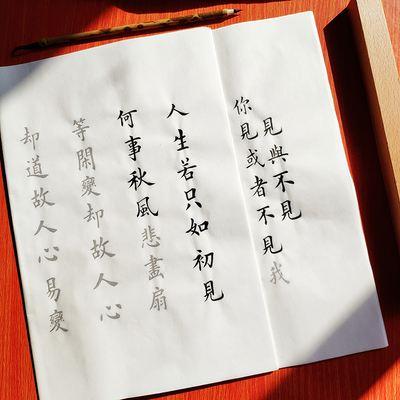 見與不見
你見或者不見我
人生若只如初見
何事秋風悲畫扇
等閑變却故人心
却道故人心易變